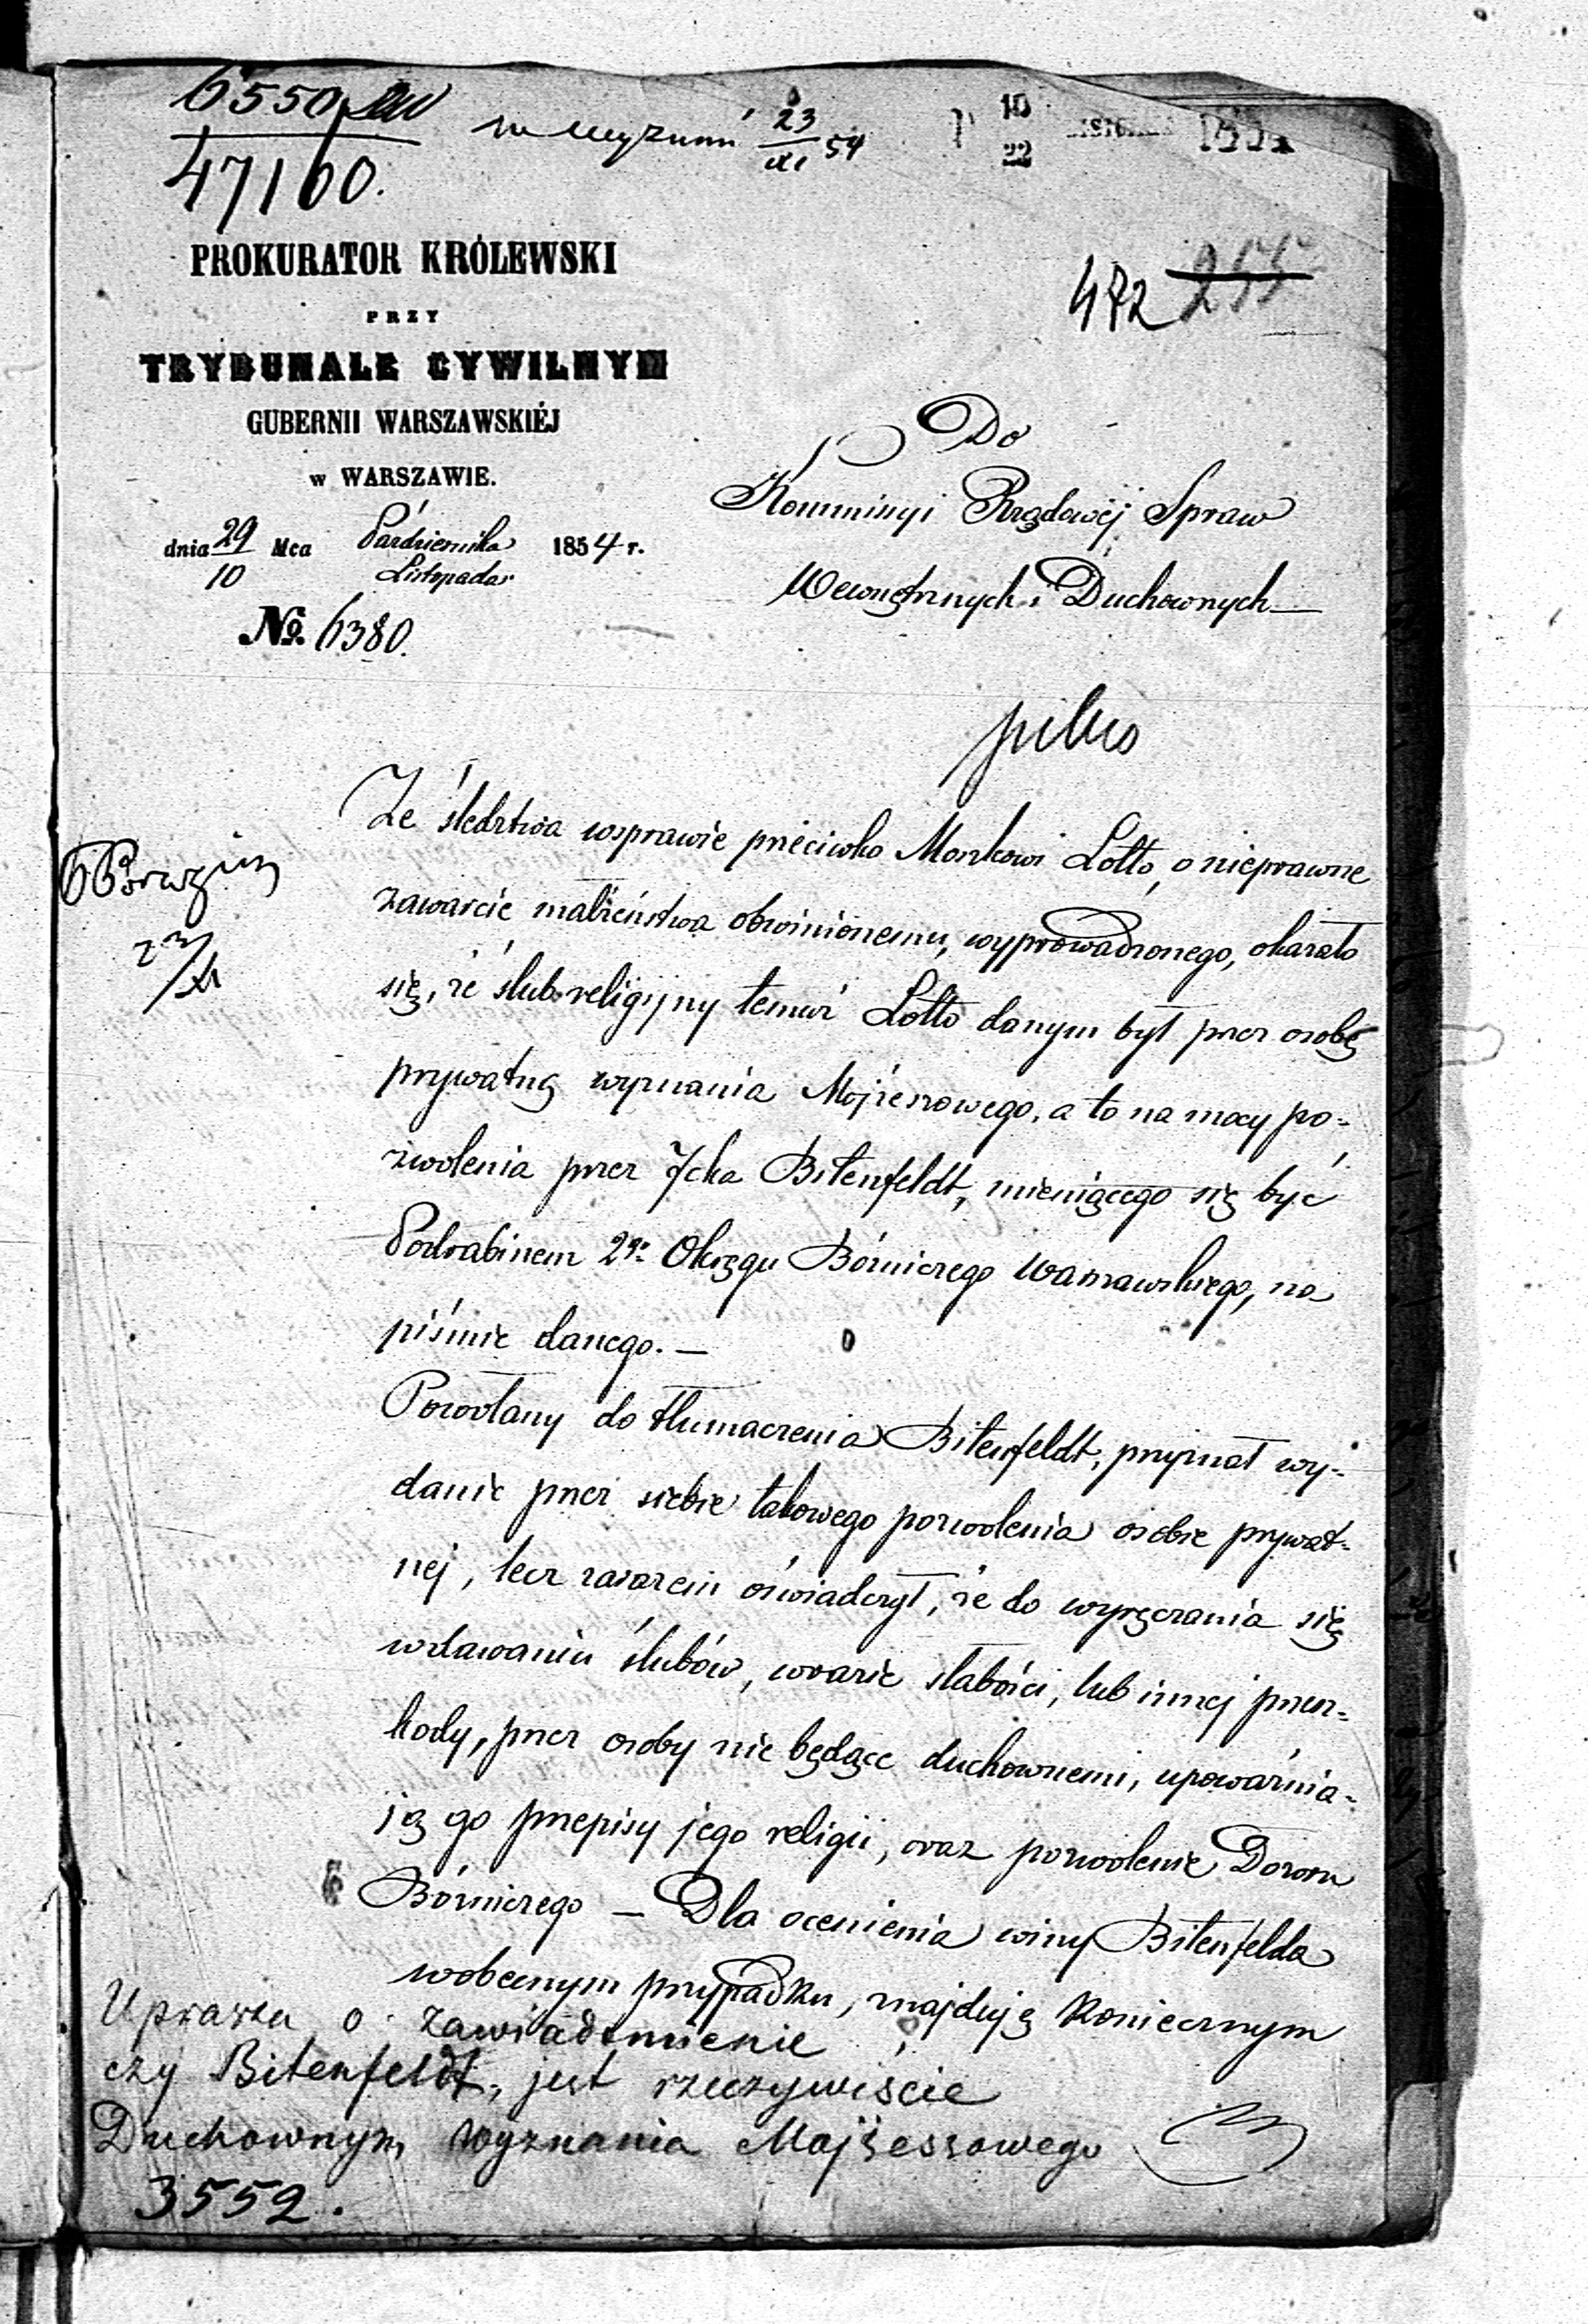 6550
47160.
23
XI 54
10
22
1854
PROKURATOR KRÓLEWSKI
PRZY
TRYBUNALE CYWILNYM
GUBERNII WARSZAWSKIÉJ
w WARSZAWIE.
dnia 29/10 Mca Października/Listopada 1854 r.
No. 6380.
472 255
Do
Kommissyi Rządowéj Spraw
Wewnętrznych i Duchownych
pilno
23/XI
Ze śledztwa wsprawie przeciwko Moszkowi Lotto, o nieprawne
zawarcie małżeństwa obwinionemu, wyprowadzonego, okazało
się, że ślub religijny temuż Lotto danym był przez osobę
prywatną wyznania Mojżeszowego, a to na mocy po-
zwolenia przez Icka Bitenfeldt, mieniącego się być
Podrabinem 2go Okręgu Bóżniczego Warszawskiego, na
piśmie danego. —
Powołany do tłumaczenia Bitenfeldt, przyznał wy-
danie przez siebie takowego pozwolenia osobie prywat-
nej, lecz zarazem oświadczył, że do wyręczania się
wdawaniu ślubów, wrazie słabości, lub innej przesz-
kody, przez osoby nie będące duchownemi, upoważnia-
ją go przepisy jego religii, oraz pozwolenie Dozoru
Bóżniczego — Dla ocenienia winy Bitenfelda
wobecnym przypadku, znajduję koniecznym
Uprasza o zawiadomienie
czy Bitenfeldt, jest rzeczywiście
Duchownym wyznania Mojżeszowego
3552.